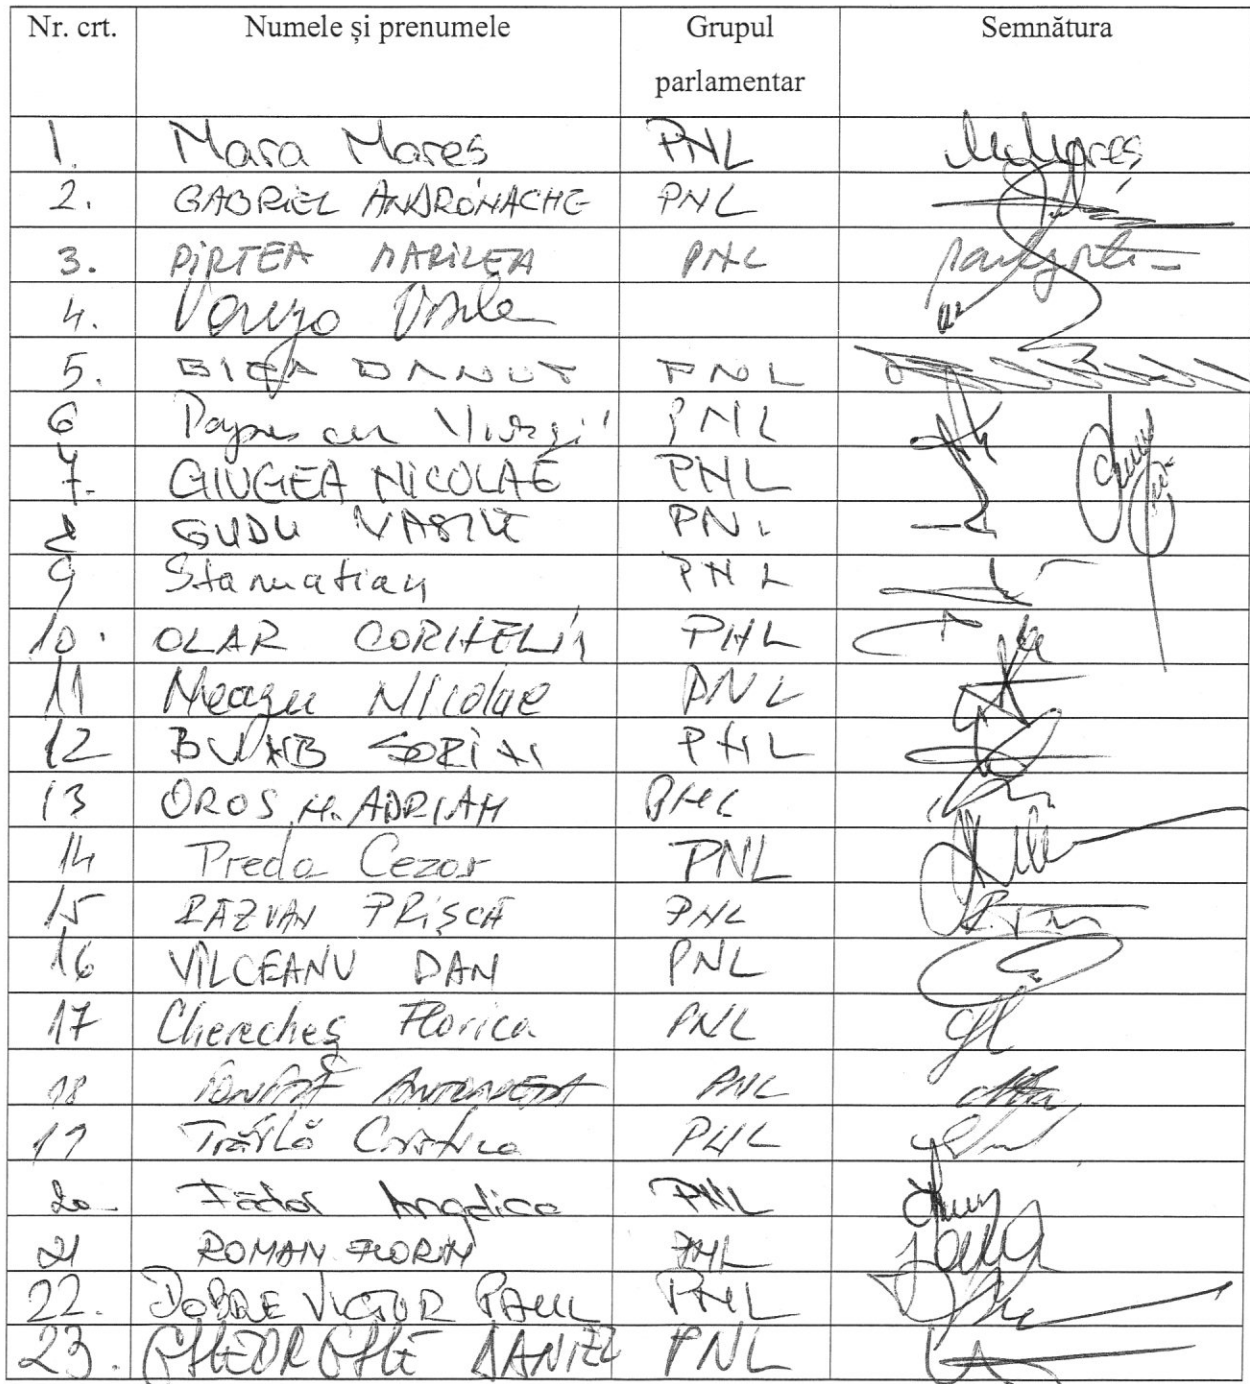 Nr. crt. Numele și prenumele Grupul parlamentar Semnătura
1. Mara Mareș PNL
2. GABRIEL ANDRONACHE PNL
3. PIRTEA MARILEN PNL
4. Varga Vasile
5. BICA DANUT PNL
6 Popescu Virgil PNL
7. GIUGEA NICOLAE PNL
8 GUDU VASILE PNL
9 Stamatian PNL
10. OLAR CORNELIU PNL
11 Neagu Nicolae PNL
12 BUMB SORIN PNL
13 OROS N. ADRIAN PNL
14 Preda Cezar PNL
15 RĂZVAN PRIȘCĂ PNL
16 VÎLCEANU DAN PNL
17 Cherecheș Florica PNL
18 IONIȚĂ ANTONETA PNL
19 Trăilă Cristina PNL
20 Fădor Angelica PNL
21 ROMAN FLORIN PNL
22. DOBRE VICTOR PAUL PNL
23. GHEORGHE DANIEL PNL